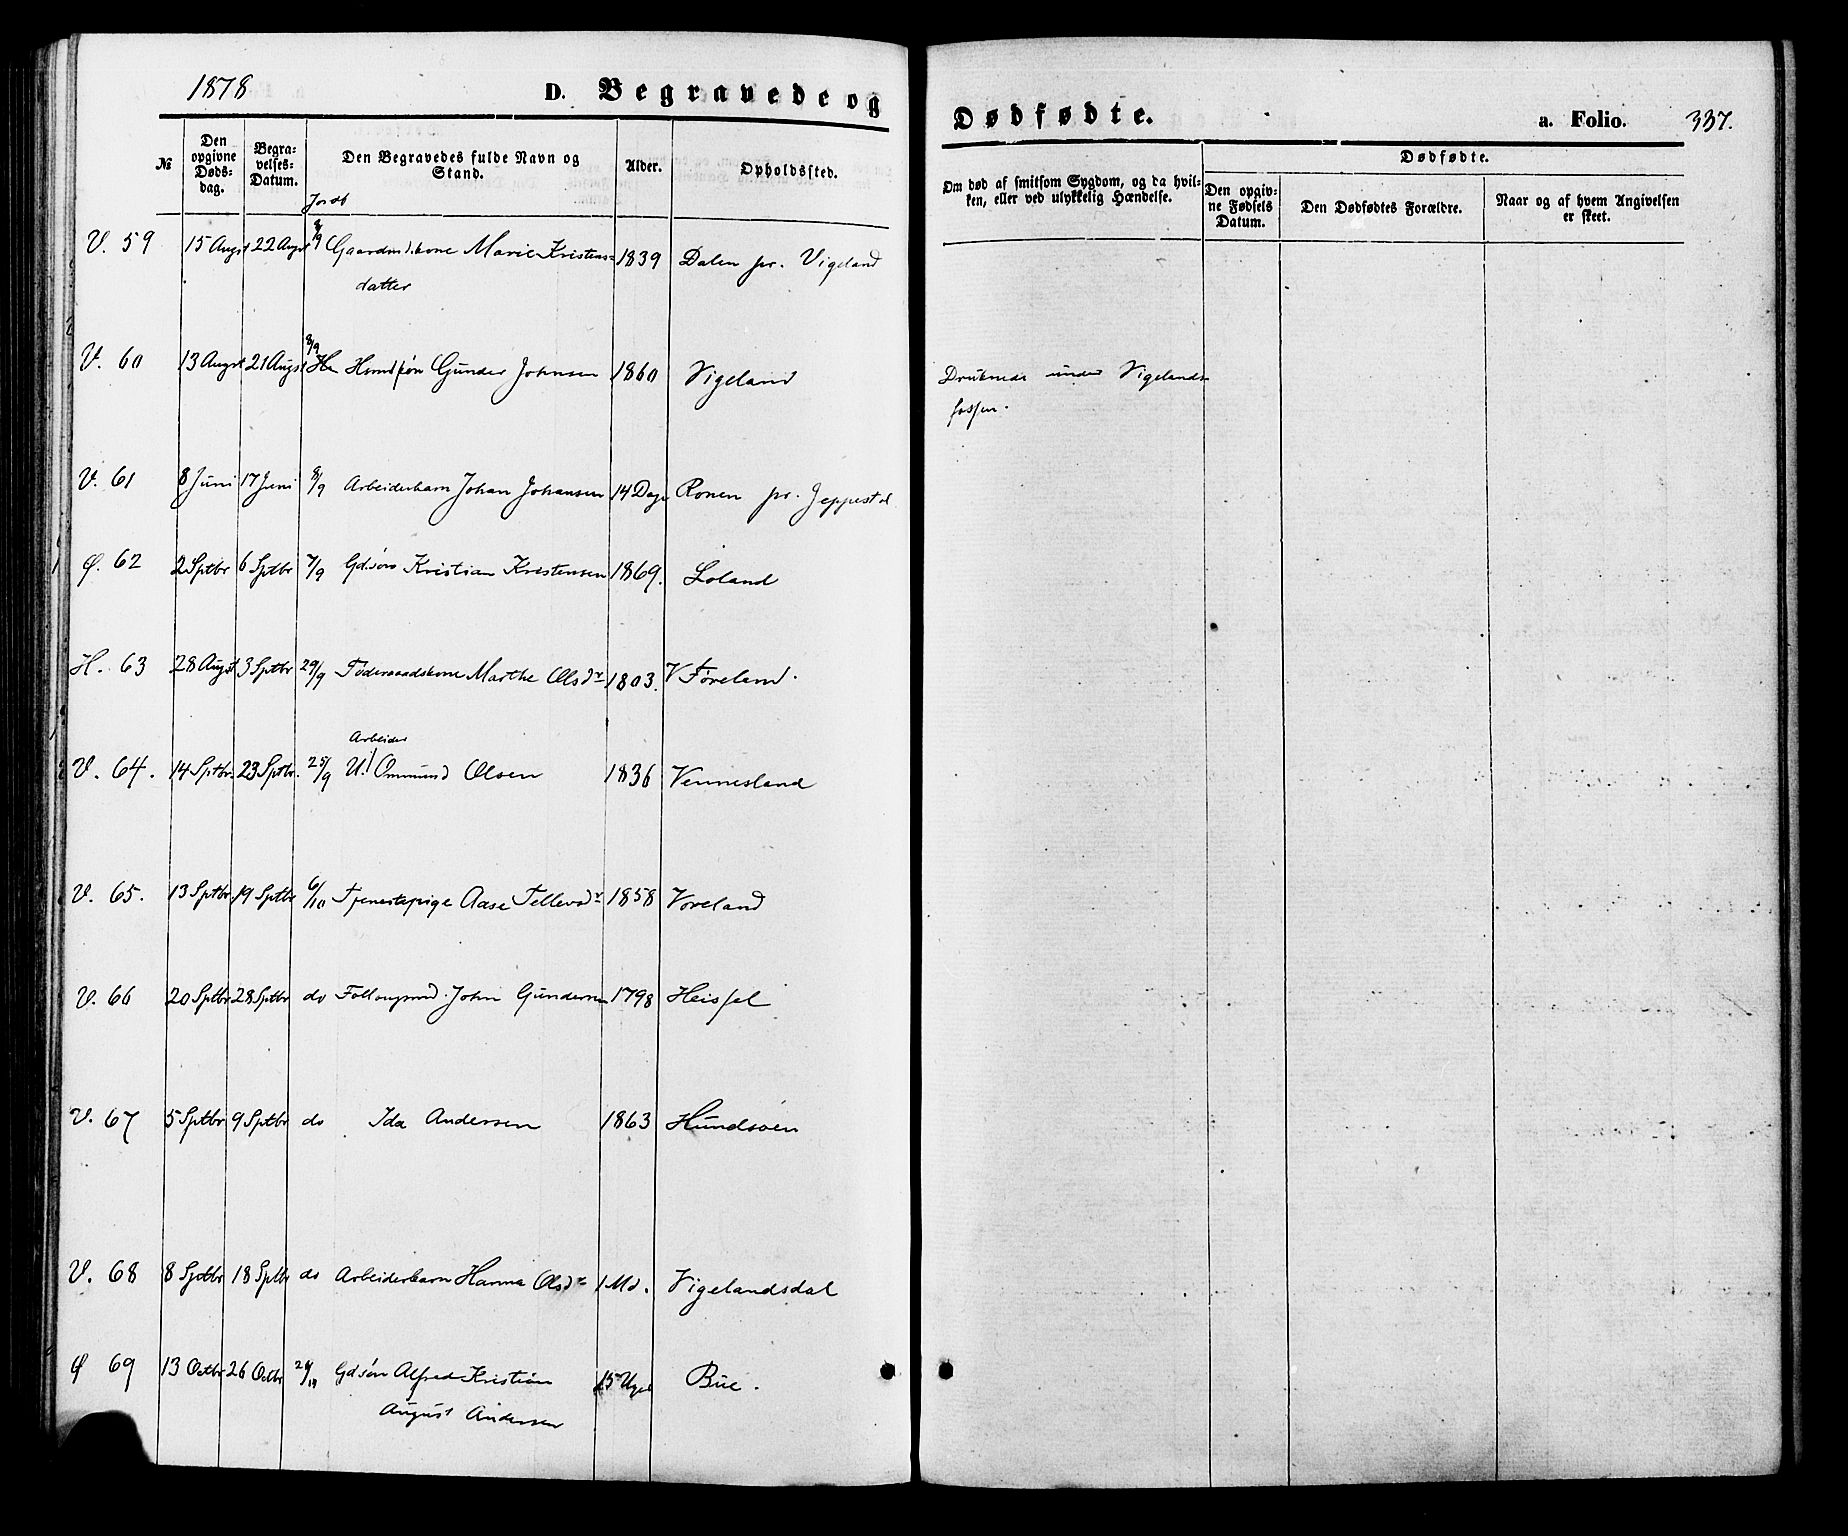 1878 D. Begravede og Dødfødte. a. Folio. 337.
№ Den opgivne Dødsdag. Begravelses-Datum. Den Begravedes fulde Navn og Stand. Alder. Opholdssted. Om død af smitsom Sygdom, og da hvilken, eller ved ulykkelig Hændelse. Dødfødte.
Den opgivne Fødsels Datum. Den Dødfødtes Forældre. Naar og af hvem Angivelsen er skeet.
V. 59 15 Augst 22 Augst 8/9 Gaardm.skone Marie Kristens=
datter 1839 Dalen pr. Vigeland
V. 60 13 Augst 21 Augst 8/9 Gunder Johnsen 1860 Vigeland Druknede under Vigelands
fossen.
V. 61 8 Juni 17 Juni 8/9 Arbeiderbarn Johan Johansen 14 Dage Ronen pr. Jeppestøl
Ø. 62 2 Sptbr 6 Sptbr 7/9 Gdsøn Kristian Kristensen 1869. Loland
H. 63 28 Augst 3 Sptbr 29/9 Føderaadskone Marthe Olsdr 1803. V Føreland.
Arbeider
V. 64. 14 Sptbr. 23 Sptbr. 25/9 U. Ommund Olsen 1836 Vennesland
V. 65. 13 Sptbr 19 Sptbr 6/10 Tjenestepige Aase Tellevsdr 1858 Voreland
V. 66 20 Sptbr 28 Sptbr do John Gundersen 1798 Heissel
V. 67 5 Sptbr 9 Sptbr do Ida Andersen 1863 Hundsøen
V. 68 8 Sptbr 18 Sptbr do Arbeiderbarn Hanna Olsdr 1 Md. Vigelandsdal
Ø 69 13 Octbr 26 Octbr Gdsøn Alfred Kristian
August Andersen 15 Uger Bue.